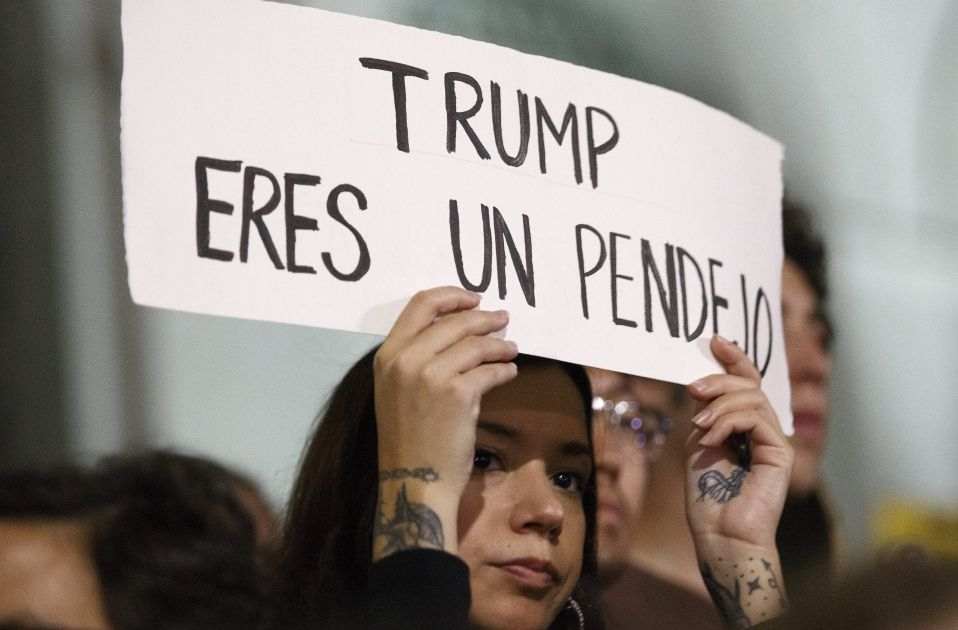 TRUMP
ERES UN PENDEJO